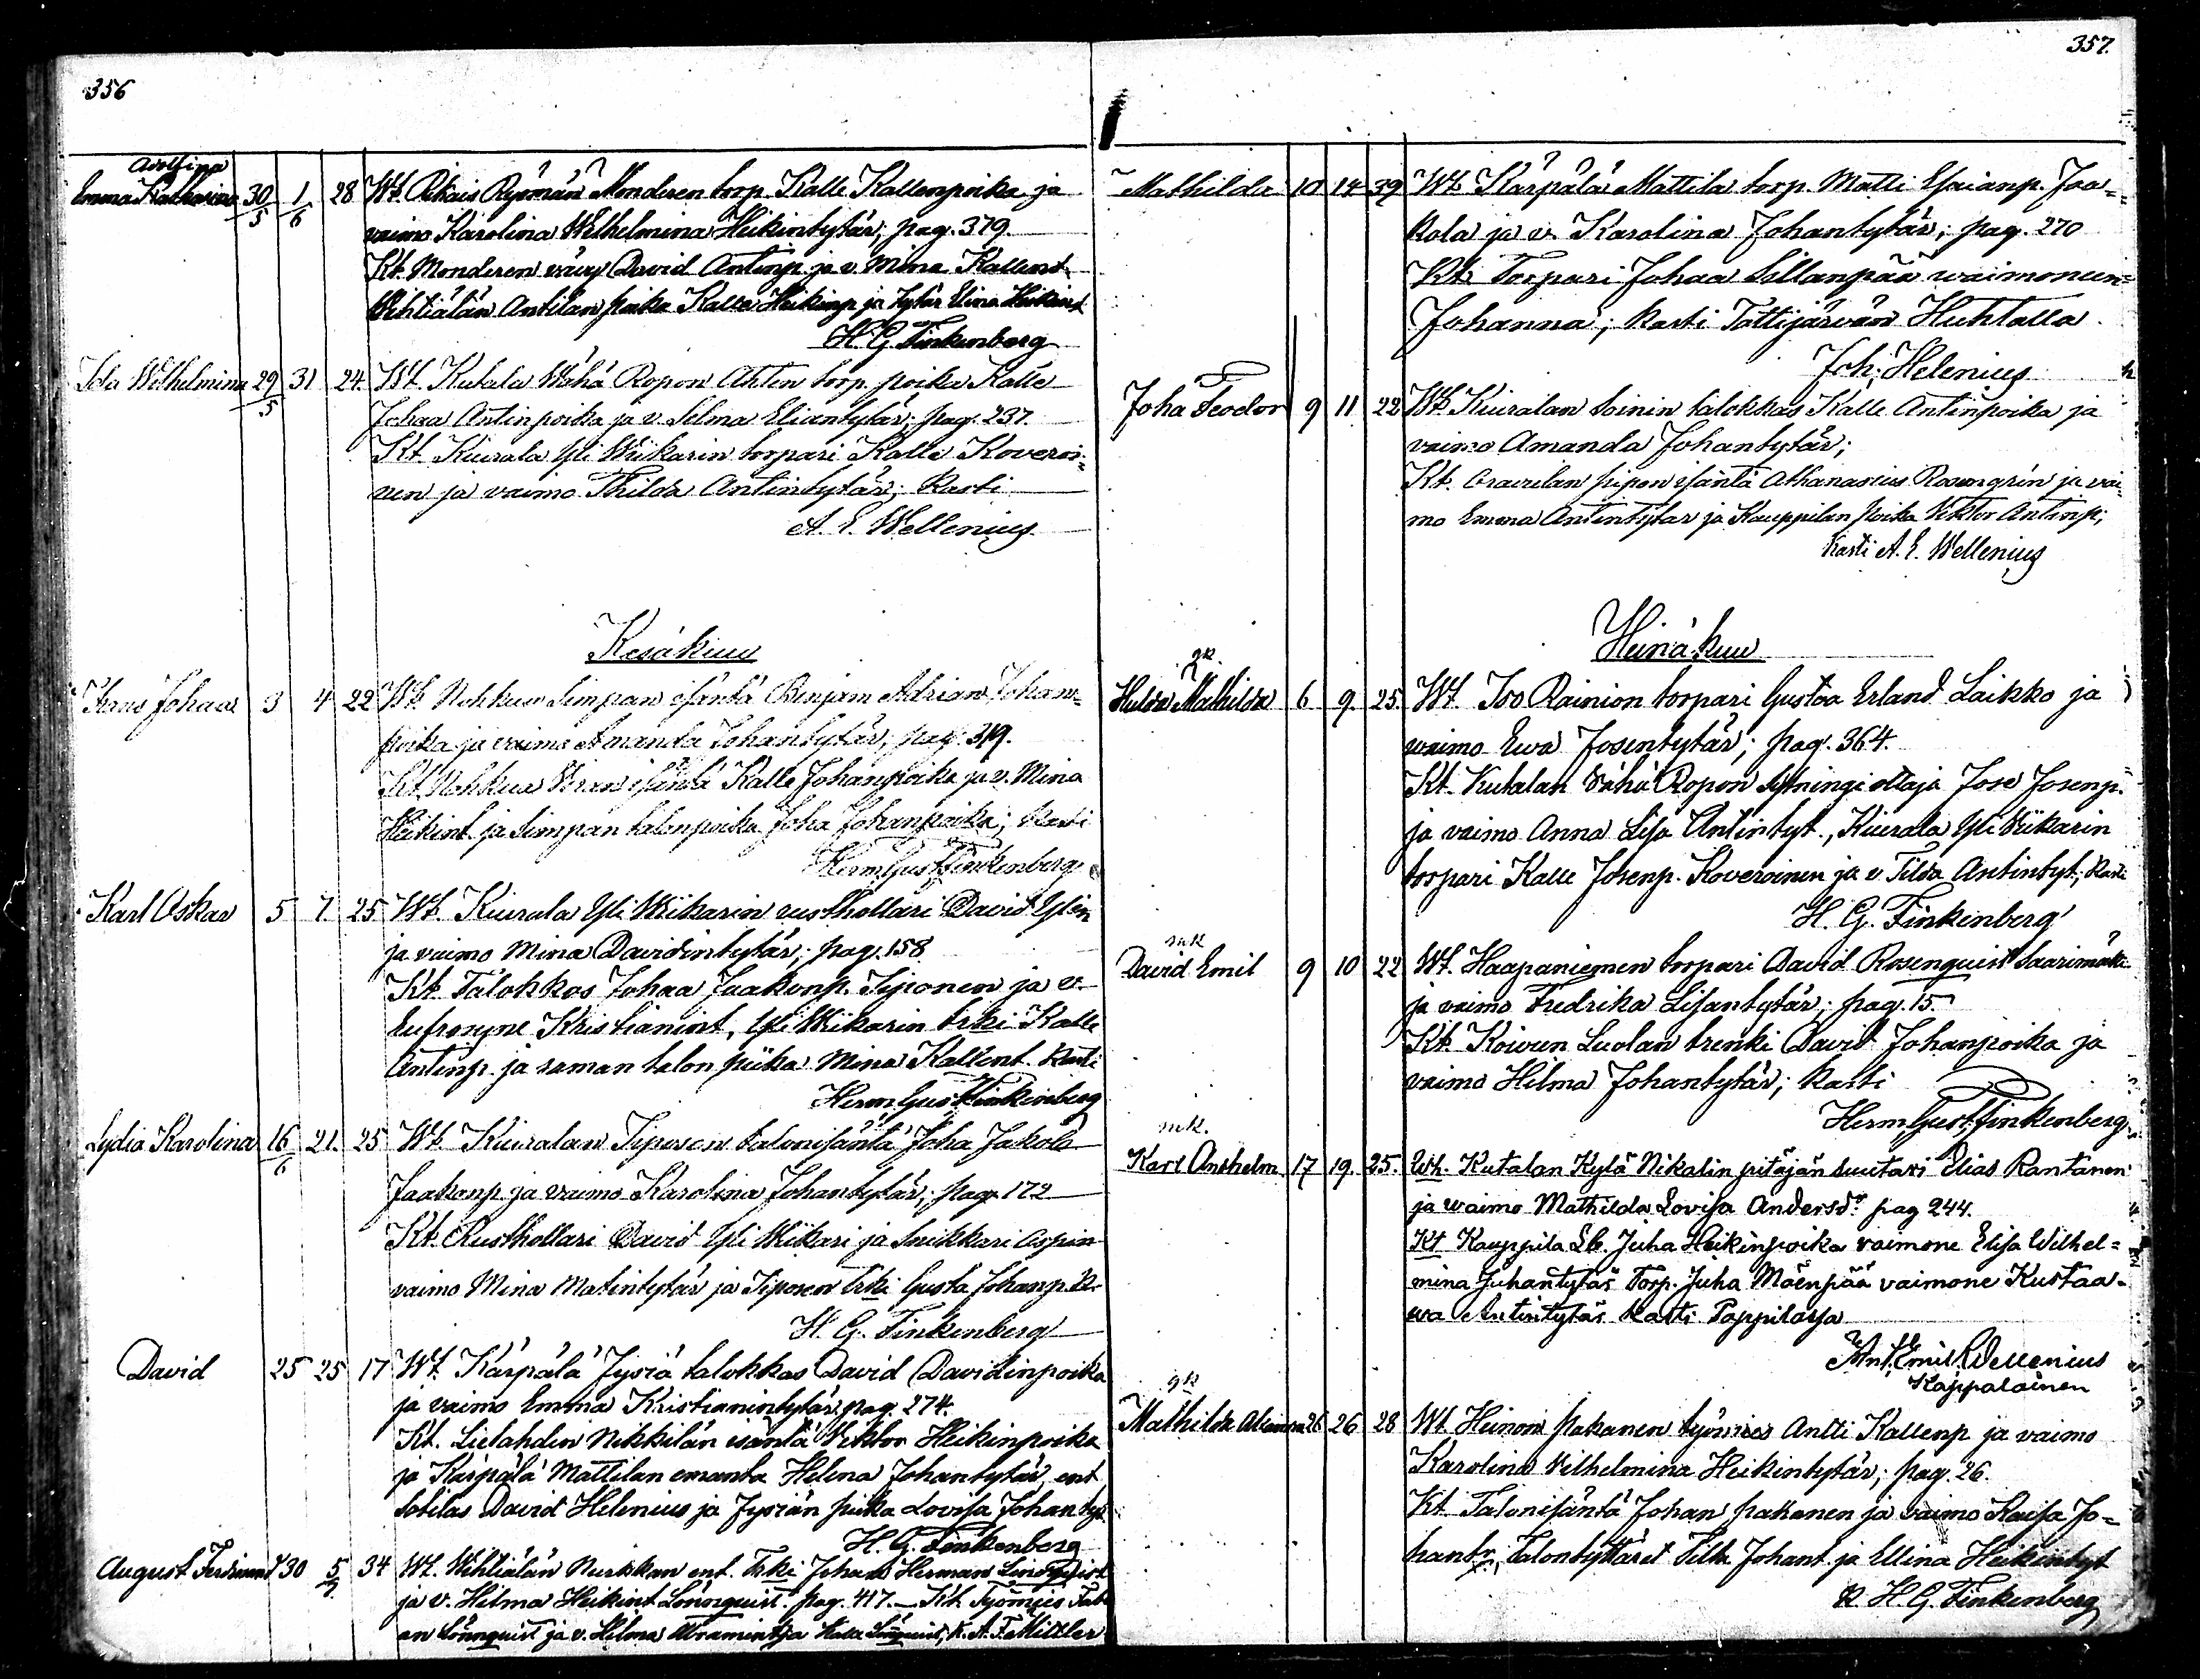 356
Adolfina
Emma Katharina 30/5 1/6 28 Wt. Monderen torp. Kalle Kallenpoika ja
vaimo Karolina Wilhelmina Heikintytär; pag. 379.
Kt. Monderen vävy David Antinp. ja v. Mina Kallent.
Wihtiälän Antilan poika Kalle Heikinp. ja tytär Elina Heikint.
H. G. Finkenberg
Ida Wilhelmina 29/5 31 24. Wt. Kutala Wähä Ropon Ahten torp. poika Kalle
Johaa Antinpoika ja v. Selma Eliantytär; pag. 237.
Kt. Kiurala Yli Wiikarin torpari Kalle Koveroi-
nen ja vaimo Thilda Antintytär; Kasti
A. E. Wellenius
Kesäkuu
Frans Johaa 3 4 22 Wt. Nohkua Simpan isäntä Benjam Adrian Johan-
poika ja vaimo Amanda Johantytär; pag. 319.
Kt. Nohkua isäntä Kalle Johanpoika ja v. Mina
Heikint. ja Simpan talonpoika Joha Johanpoika; Kasti
Herm. Gust. Finkenberg
Karl Oskar 5 7. 25 Wt. Kiurala Yli Wiikarin rusthollari David
ja vaimo Mina Davidintytär; pag. 158
Kt. Talokkas Johaa Jaakonp. Siponen ja v.
Eufrosyne Kristianint., Yli Wiikarin trki Kalle
Antinp. ja saman talon piika Mina Kallent. Kasti
Herm. Gust. Finkenberg
Lydia Karolina 16/6 21. 25 Wt. Kiuralan Siposen talonisäntä Joha Jakob
Jaakonp. ja vaimo Karolina Johantytär; pag. 172
Kt. Rusthollari David Yli Wiikari ja Snikkari Aspin
vaimo Mina Matintytär ja Siposen trki Gusta Johanp. K.
H. G. Finkenberg
David 25 25 17 Wt. Kärpälä Jyriä talokkas David Davidinpoika
ja vaimo Emma Kristianintytär; pag. 274.
Kt. Lielahden Nikkilän isäntä Viktor Heikinpoika
ja Kärpälä Mattilan emäntä Helena Johantytär, ent.
sotilas David Helenius ja Jyriän piika Lovisa Johantyt.
H. G. Finkenberg
August Ferdinand 30 5/7. 34 Wt. Wihtiälän Nurkkan ent. Trki Johan Herman Lindqvist
ja v. Hilma Heikint. Lönnquist. pag. 417. — Kt. Työmies
Lönnquist ja v. Hilma Abramint. ja Kalle Lönnquist; K. A. F. Mittler
357.
Mathilda 10 14 39 Wt. Kärpälä Mattila torp. Matti Esaianp. Jaa-
kola ja v. Karolina Johantytär; pag. 270
Kt. Torpari Johaa Sillanpää waimoneen
Johanna; Kasti Tattijärven Huhtalla.
Joh. Helenius
Joha Feodor 9 11 22 Wt. Kiuralan Soinin talokkas Kalle Antinpoika ja
vaimo Amanda Johantytär;
Kt. isäntä Athanasius Rosengrin ja vai-
mo Emma Antintytär ja Kauppilan poika Viktor Antinp;
Kasti A. E. Wellenius
Heinäkuu
gk
Hulda Mathilda 6 9. 25. Wt. Iso Rainion torpari Gustaa Erland Laikko ja
waimo Ewa Josentytär; pag. 364.
Kt. Kutalan Vähä Ropon sytningi ottaja Jose Josenp.
ja vaimo Anna Lisa Antintyt., Kiurala Yli Wiikarin
torpari Kalle Josenp. Koveroinen ja v. Tilda Antintyt.; Kasti
H. G. Finkenberg
mk
David Emil 9 10 22 Wt. Haapaniemen torpari David Rosenquist Saarimäki
ja vaimo Fredrika Lisantytär; pag. 15.
Kt. Koivun Luolan trenki David Johanpoika ja
vaimo Hilma Johantytär; Kasti
Herm. Gust. Finkenberg.
mk.
Karl Anshelm 17 19. 25. Wh. Kutalan Kylä Nikalin pitäjän suutari Elias Rantanen
ja waimo Mathilda Lovisa Andersdr. pag 244.
Kt Kauppila Lb. Juha Heikinpoika vaimone Elisa Wilhel-
mina Juhantytär Torp. Juha Mäenpää vaimone Kustaa-
wa Antintytär Kasti Pappilassa
Ant. Emil Wellenius
Kappalainen
gk
Mathilda 26 26 28 Wt. Heinoin Pakanen työmies Antti Kallenp. ja vaimo
Karolina Vilhelmina Heikintytär; pag. 26.
Kt. Talonisäntä Johan Pakanen ja vaimo Kaisa Jo-
hantr.; Talontyttäret Tilta Johant. ja Ellina Heikintyt
K. H. G. Finkenberg